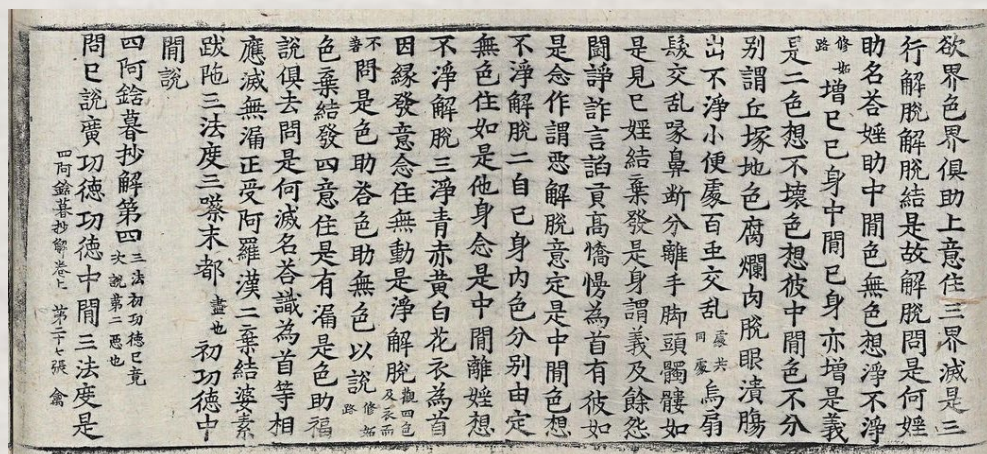 欲界色界俱助上意住三界滅是三
行解脫解脫結是故解脫問是何婬
助名荅婬助中間色無色想淨不淨
修妬路增已已身中間已身亦增是義
是二色想不壞色想彼中間色不分
別謂丘塚地色腐爛肉脫眼潰膓
出不淨小便處百虫交乱處共同處烏扇
髮交乱喙鼻斷分離手脚頭髑髏如
是見已婬結棄發是身謂義及餘怨
鬪諍詐言諂貢高憍慢為首有彼如
是念作謂惡解脫意定是中間色想
不淨解脫二自己身內色分別由定
無色住如是他身念是中間離婬想
不淨解脫三淨青赤黃白花衣為首
因緣發意念住無動是淨解脫觀四色及衣而
不善問是色助荅色助無色以說修妬路
色棄結發四意住是有漏是色助福
說俱去問是何滅名荅識為首等相
應滅無漏正受阿羅漢二棄結婆素
跋陁三法度三㘑末都盡也初功德中
間說
四阿鋡暮抄解第四三法初功德已竟次說第二惡也
問已說廣功德功德中間三法度是
四阿鋡暮抄解卷上 第二十七張 禽